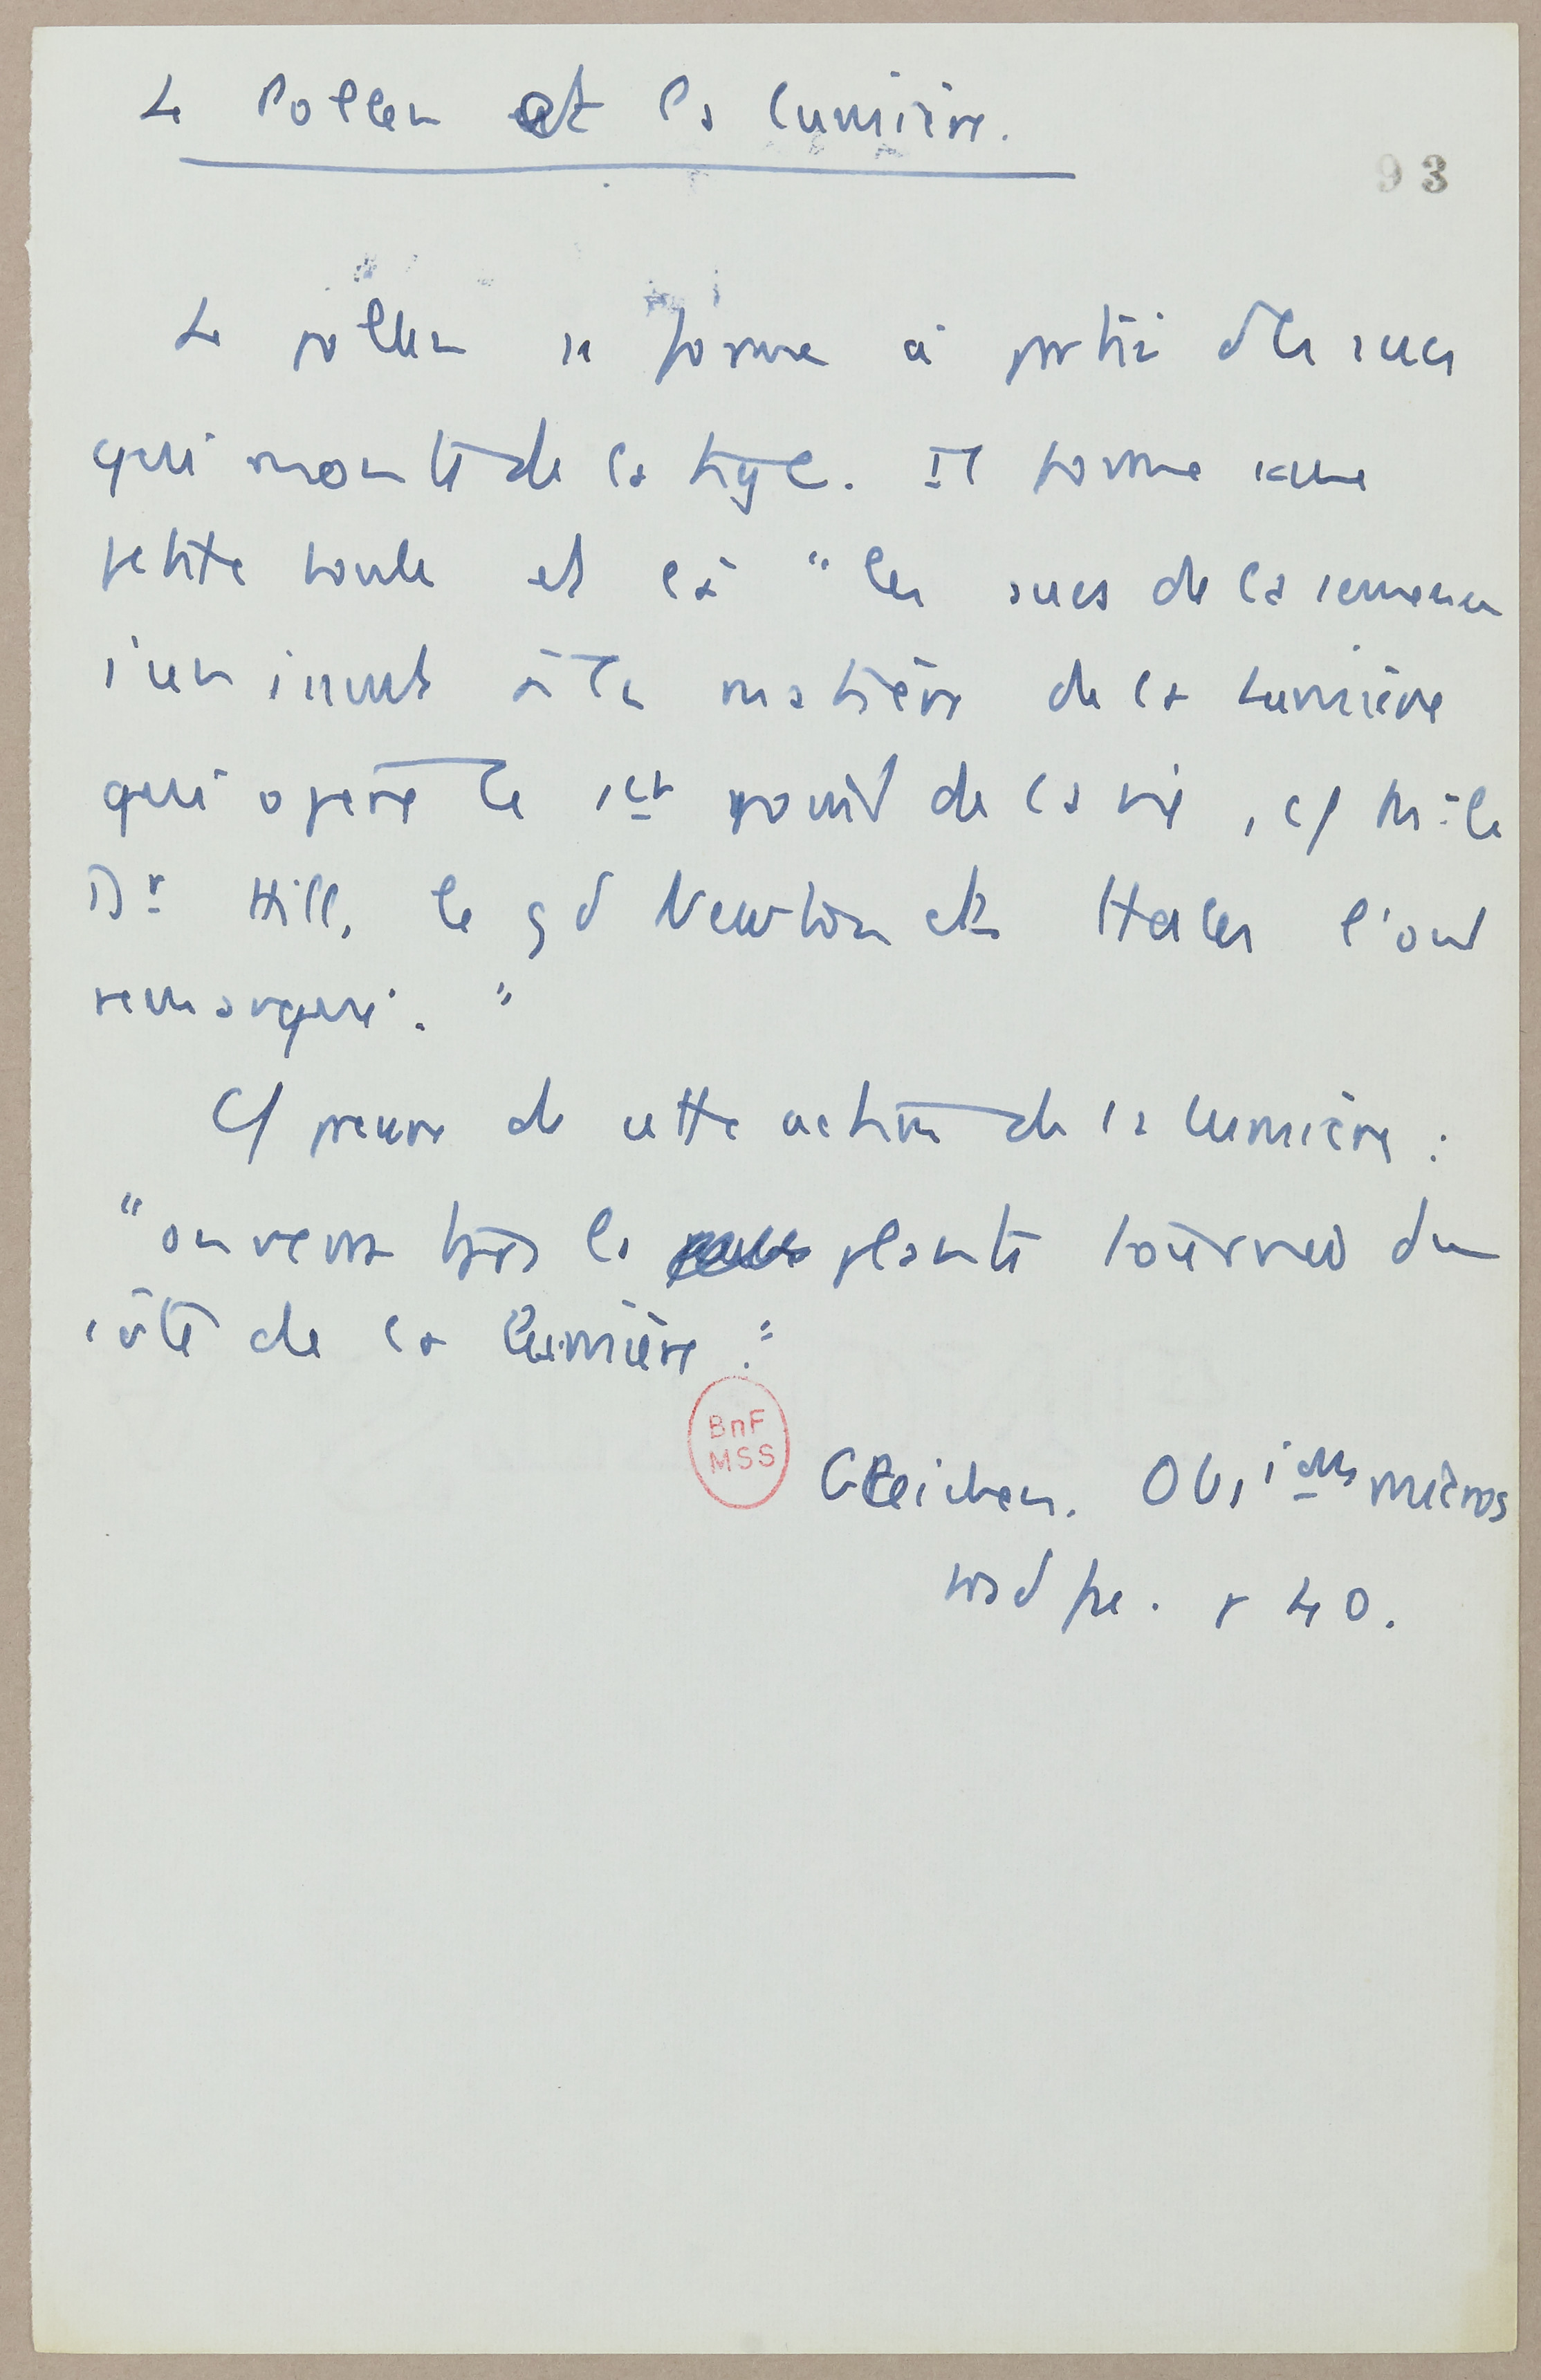 Le Pollen et la lumière.
93
Le pollen se forme à partir des sucs
qui monte de la tige. Il forme une
petite boule et là " les sucs de la semence
s'unissent à la matière de la Lumière
qui opère le 1er point de la vie, cf
Dr Hill, le gd Newton et Hales l'ont
remarqué. "
Cf preuve de cette action de la lumière :
" on verra tjrs la plante tournée du
côté de la lumière. "
BnF
MSS
Gleichen. Obs micros
trad fse. p 40.